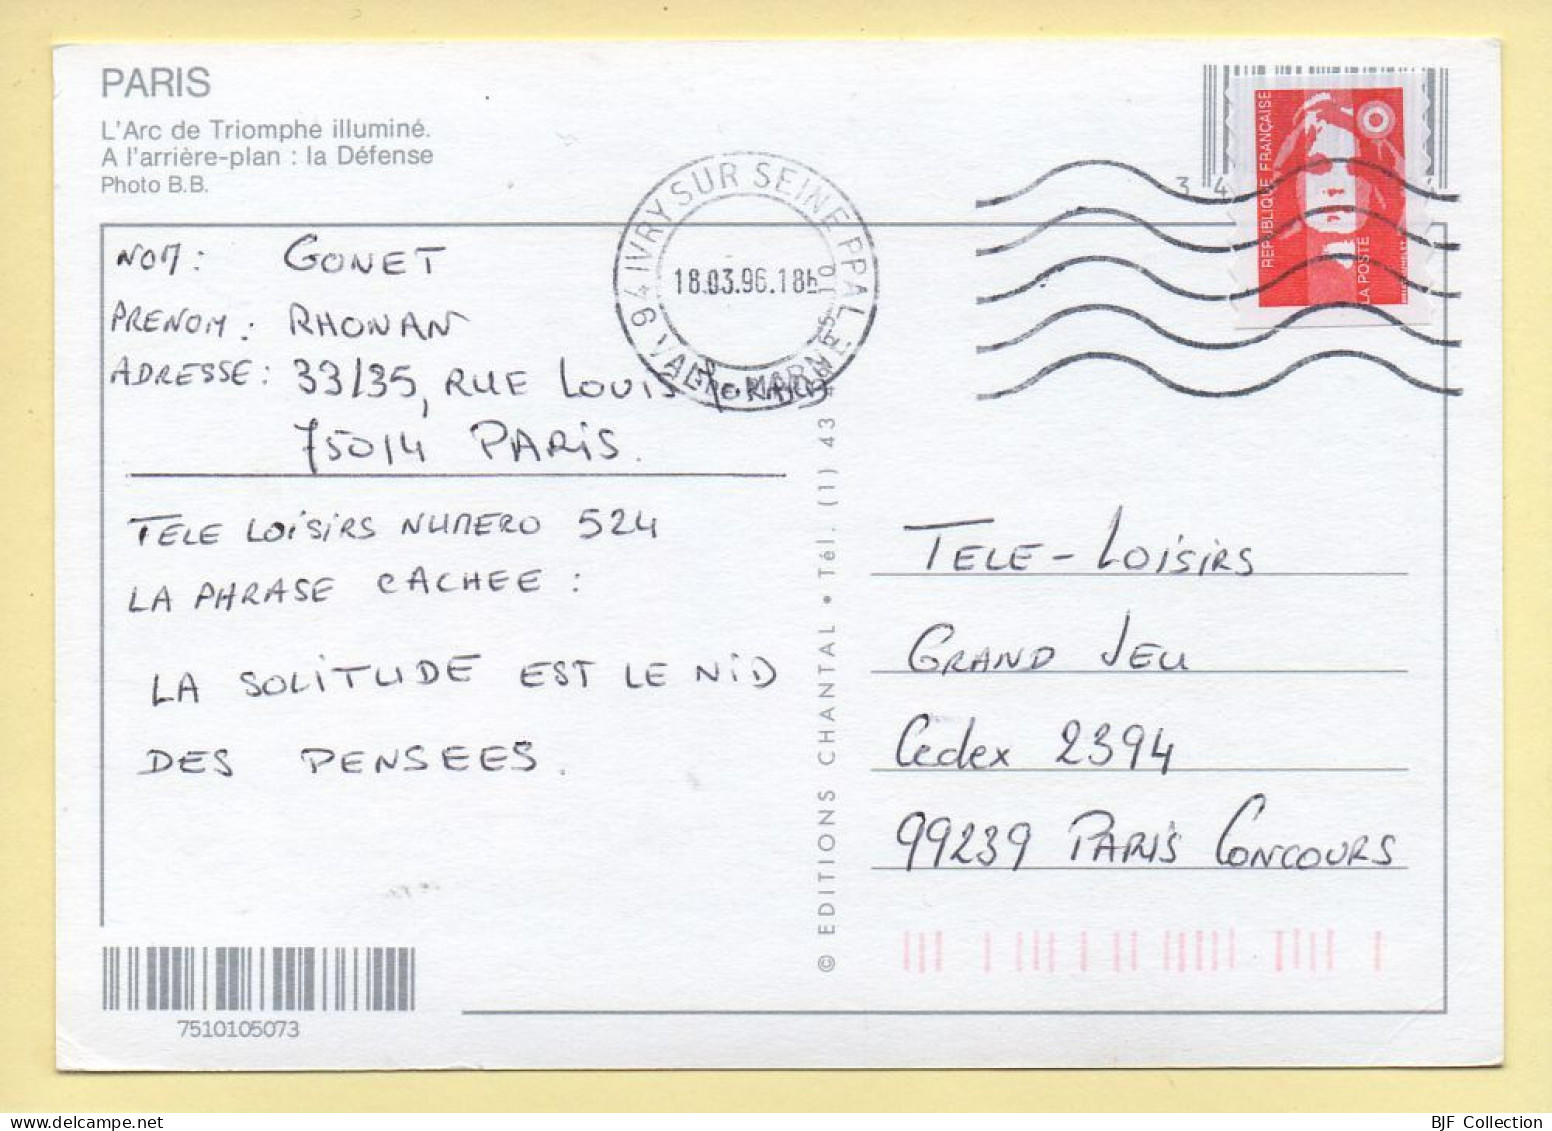 PARIS
L'Arc de Triomphe illuminé.
A l'arrière-plan : la Défense
Photo B.B.
NOM : GONET
PRENOM : RHONAN
ADRESSE : 33/35, RUE LOUIS MORARD
75014 PARIS.
TELE LOISIRS NUMERO 524
LA PHRASE CACHEE :
LA SOLITUDE EST LE NID
DES PENSEES.
7510105073
94 IVRY SUR SEINE PPAL
VAL DE MARNE
18.03.96.18h
© EDITIONS CHANTAL • Tél. (1) 43
34
REPUBLIQUE FRANÇAISE
LA POSTE
TELE-LOISIRS
GRAND JEU
Cedex 2394
99239 PARIS CONCOURS
BJF Collection